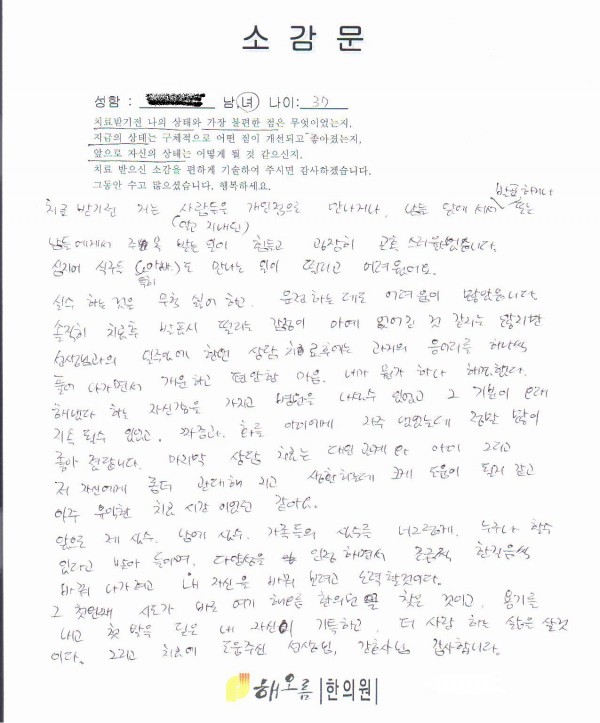 소 감 문
성함 : 남,녀 나이: 37
치료받기전 나의 상태와 가장 불편한 점은 무엇이었는지.
지금의 상태는 구체적으로 어떤 점이 개선되고 좋아졌는지.
앞으로 자신의 상태는 어떻게 될 것 같으신지.
치료 받으신 소감을 편하게 기술하여 주시면 감사하겠습니다.
그동안 수고 많으셨습니다. 행복하세요.
발표하거나
치료 받기전 저는 사람들을 개인적으로 만나거나, 남들 앞에 서서 또는
(알고 지내던)
남들에게서 주목 받는 일이 힘들고 굉장히 고통스러웠었습니다.
심지어 식구들 (아빠)도 만나는 일이 떨리고 어려웠어요.
특히
실수 하는 것은 무척 싫어 하고. 운전하는 데도 어려움이 많았습니다.
솔직히 치료후 발표시 떨리는 감정이 아예 없어진 것 같지는 않지만
선생님과의 일주일에 한번 상담 치료후에는 과거의 응어리를 하나씩
풀어 나가면서 개운하고 편안한 마음. 내가 뭔가 하나 해냈다.
해냈다 하는 자신감을 가지고 병원을 나설수 있었고 그 기분이 오래
지속 될수 있었고. 짜증과. 화를 아이에게 자주 냈었는데 정말 많이
좋아 졌답니다. 마지막 상담 치료는 대인관계와 아이 그리고
저 자신에게 좀더 관대해 지고 생활하는데 크게 도움이 될거 같고
아주 유익한 치료 시간 이었던 같아요.
앞으로 제 실수. 남의 실수. 가족들의 실수를 너그럽게. 누구나 할수
있다고 받아 들이며. 다양성을 인정 하면서 조금씩 한걸음씩
바꿔 나가려고 내 자신을 바꿔 보려고 노력할것이다.
그 첫번째 시도가 바로 여기 해오름 한의원을 찾은 것이고. 용기를
내고 첫 발을 딛은 내 자신이 기특하고. 더 사랑 하는 삶을 살것
이다. 그리고 치료에 도움주신 선생님, 간호사님 감사합니다.
해오름 |한의원|